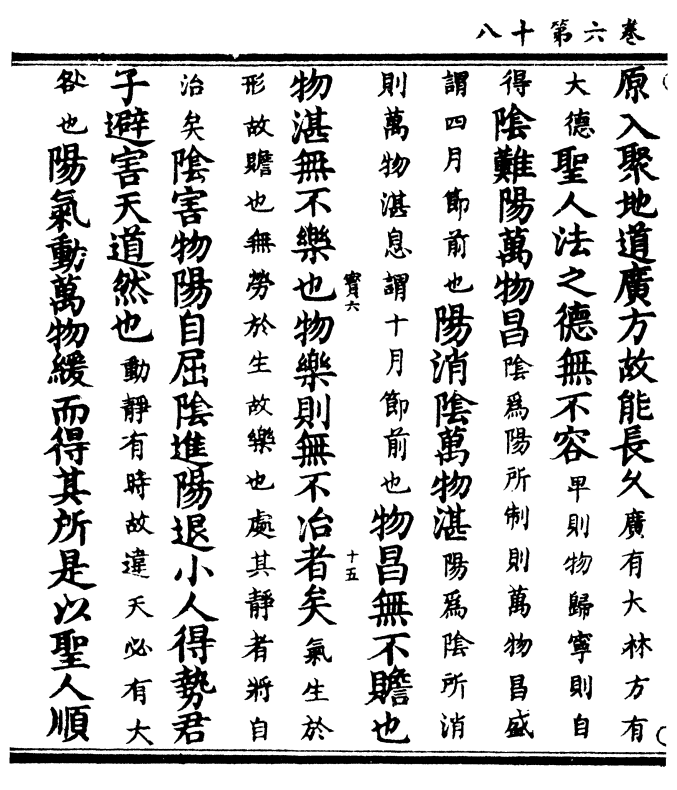 卷六第十八
原入聚地道廣方故能長久廣有大林方有
大德聖人法之德無不容卑則物歸寧則自
得陰難陽萬物昌陰爲陽所制則萬物昌盛
謂四月節前也陽消陰萬物湛陽爲陰所消
則萬物湛息謂十月節前也物昌無不贍也
寳六
十五
物湛無不樂也物樂則無不冶者矣氣生於
形故贍也無勞於生故樂也處其靜者將自
治矣陰害物陽自屈陰進陽退小人得勢君
子避害天道然也動靜有時故違天必有大
咎也陽氣動萬物緩而得其所是以聖人順